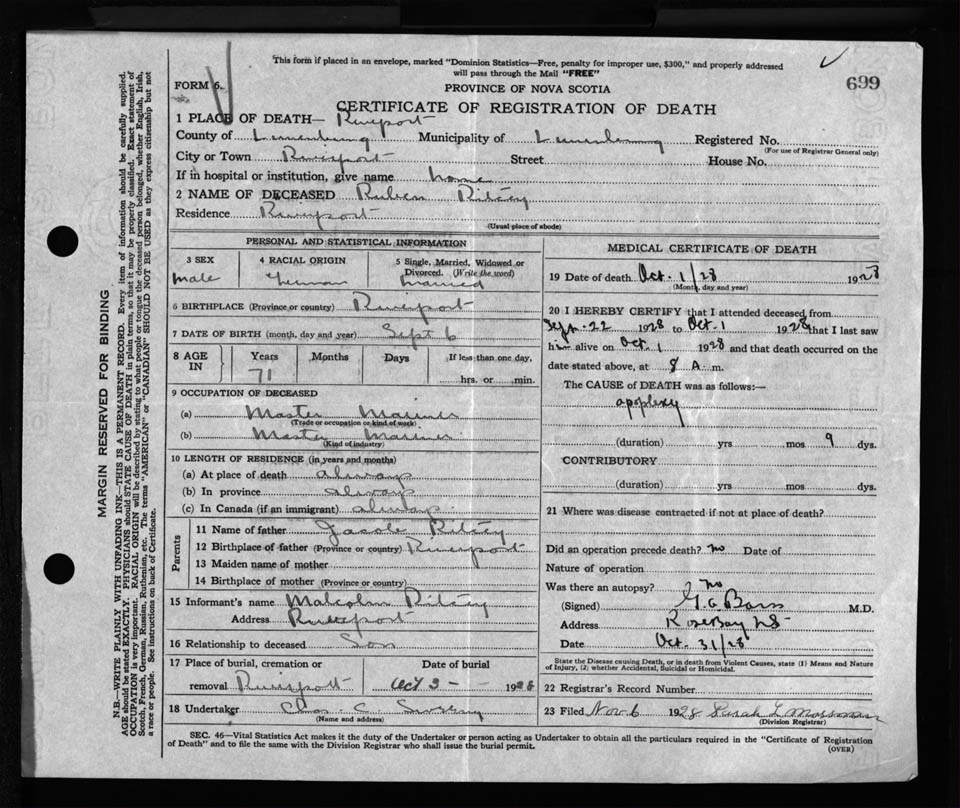 This form if placed in an envelope, marked "Dominion Statistics—Free, penalty for improper use, $300," and properly addressed
will pass through the Mail "FREE"
699
FORM 6.
PROVINCE OF NOVA SCOTIA
CERTIFICATE OF REGISTRATION OF DEATH
1 PLACE OF DEATH— Riverport
County of Lunenburg Municipality of Lunenburg Registered No.
(For use of Registrar General only)
City or Town Riverport Street House No.
If in hospital or institution, give name home
2 NAME OF DECEASED Ruben Ritcey
Residence Riverport
(Usual place of abode)
PERSONAL AND STATISTICAL INFORMATION
3 SEX 4 RACIAL ORIGIN 5 Single, Married, Widowed or
Divorced. (Write the word)
male German married
6 BIRTHPLACE (Province or country) Riverport
7 DATE OF BIRTH (month, day and year) Sept 6
8 AGE IN Years Months Days If less than one day,
71 hrs. or min.
9 OCCUPATION OF DECEASED
(a) Master Mariner
(Trade or occupation or kind of work)
(b) Master Mariner
(Kind of industry)
10 LENGTH OF RESIDENCE (in years and months)
(a) At place of death always
(b) In province always
(c) In Canada (if an immigrant) always
Parents
11 Name of father Jacob Ritcey
12 Birthplace of father (Province or country) Riverport
13 Maiden name of mother
14 Birthplace of mother (Province or country)
15 Informant's name Malcolm Ritcey
Address Riverport
16 Relationship to deceased Son
17 Place of burial, cremation or Date of burial
removal Riverport Oct 3 - 1928
18 Undertaker Chas. C.
(Name and address)
MEDICAL CERTIFICATE OF DEATH
19 Date of death Oct. 1/28 1928
(Month, day and year)
20 I HEREBY CERTIFY that I attended deceased from
Sept. 22 1928 to Oct. 1 1928 that I last saw
him alive on Oct. 1 1928 and that death occurred on the
date stated above, at 8 A. m.
The CAUSE of DEATH was as follows:—
apoplexy
(duration) yrs mos 9 dys.
CONTRIBUTORY
(duration) yrs mos dys.
21 Where was disease contracted if not at place of death?
Did an operation precede death? no Date of
Nature of operation
Was there an autopsy? no
(Signed) M.D.
Address Rose Bay NS
Date Oct. 31/28
State the Disease causing Death, or in death from Violent Causes, state (1) Means and Nature
of Injury, (2) whether Accidental, Suicidal or Homicidal.
22 Registrar's Record Number
23 Filed Nov 6 1928 Sarah L Mossman
(Division Registrar)
SEC. 46—Vital Statistics Act makes it the duty of the Undertaker or person acting as Undertaker to obtain all the particulars required in the "Certificate of Registration
of Death" and to file the same with the Division Registrar who shall issue the burial permit.
(OVER)
MARGIN RESERVED FOR BINDING
N.B.—WRITE PLAINLY WITH UNFADING INK—THIS IS A PERMANENT RECORD. Every item of information should be carefully supplied.
AGE should be stated EXACTLY. PHYSICIANS should STATE CAUSE OF DEATH in plain terms, so that it may be properly classified. Exact statement of
OCCUPATION is very important. RACIAL ORIGIN will be described by stating to what people or tongue the deceased person belonged, whether English, Irish,
Scotch, French, German, Russian, Ruthenian, etc. The terms "AMERICAN" or "CANADIAN" SHOULD NOT BE USED as they express citizenship but not
a race or people. See instructions on back of Certificate.